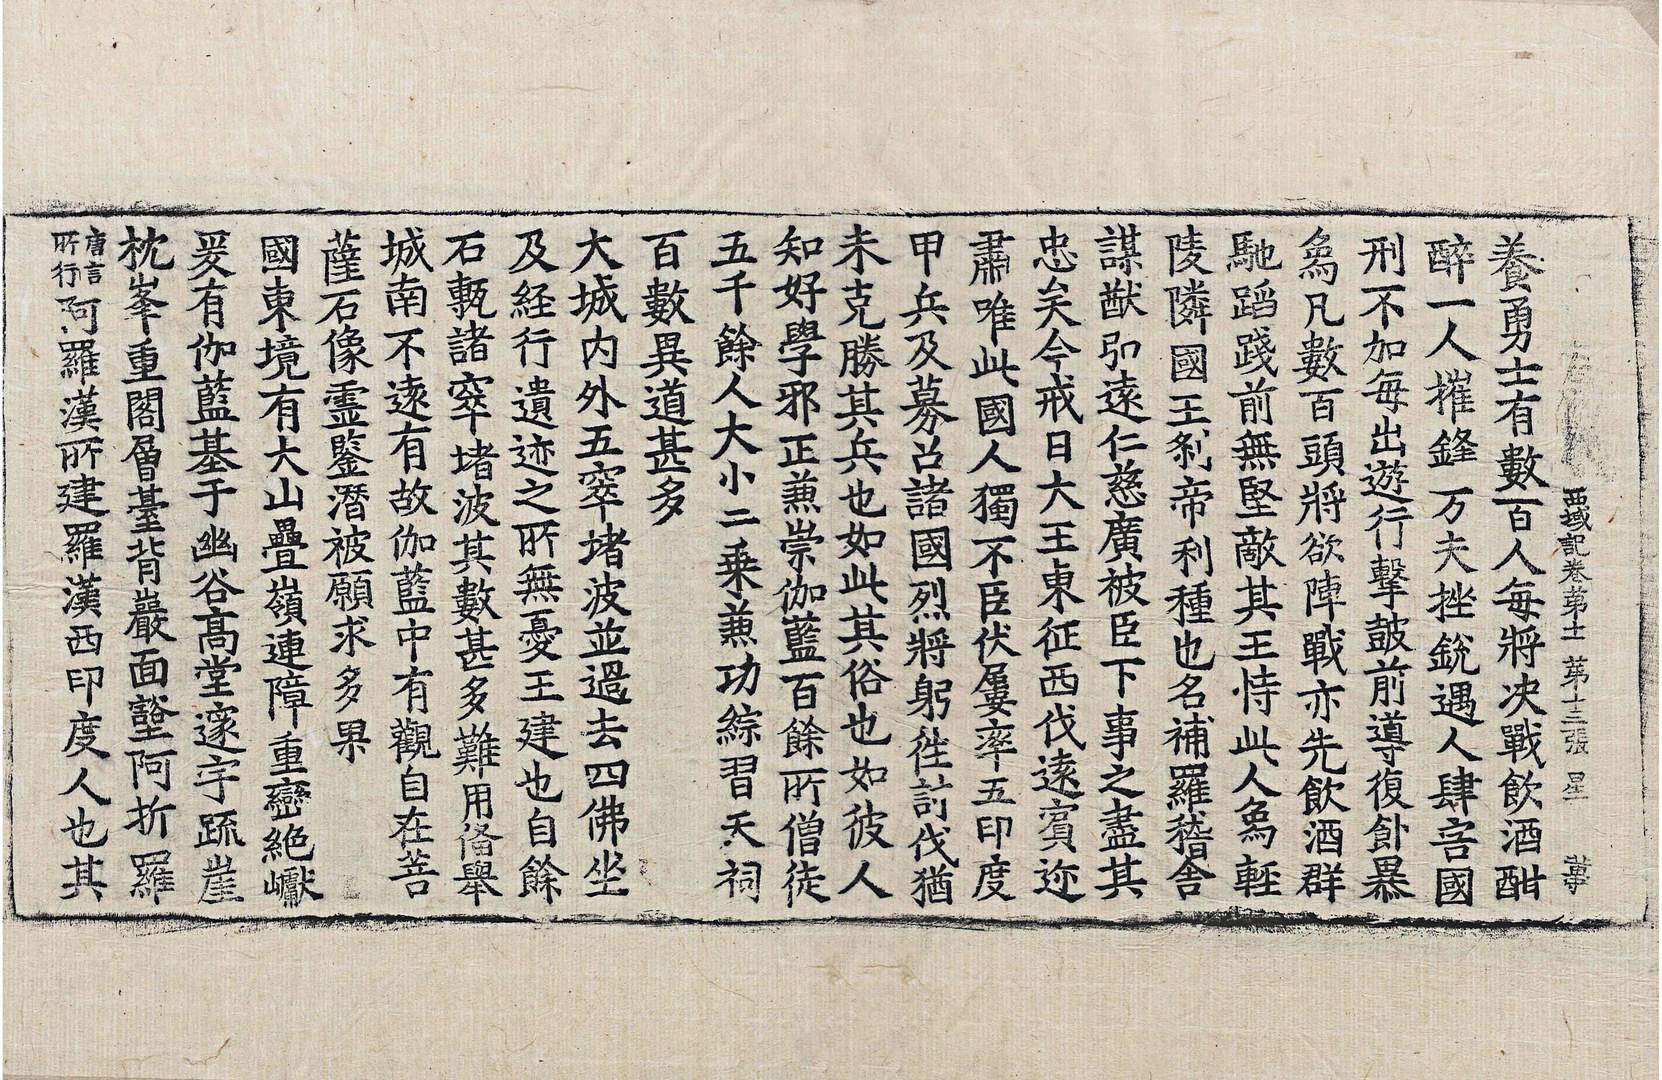 西域記卷苐十一 苐十三張 星
養勇士有數百人每將决戰飲酒酣
醉一人摧鋒万夫挫銳遇人肆害國
刑不加每出遊行擊皷前導復飼暴
象凡數百頭將欲陣戰亦先飲酒群
馳蹈踐前無堅敵其王恃此人象輕
陵隣國王刹帝利種也名補羅稽舍
謀猷弘遠仁慈廣被臣下事之盡其
忠矣今戒日大王東征西伐遠賓迩
肅唯此國人獨不臣伏屢率五印度
甲兵及募召諸國烈將躬徃討伐猶
未克勝其兵也如此其俗也如彼人
知好學邪正兼崇伽藍百餘所僧徒
五千餘人大小二乗兼功綜習天祠
百數異道甚多
大城内外五窣堵波並過去四佛坐
及経行遺迹之所無憂王建也自餘
石甎諸窣堵波其數甚多難用俻舉
城南不遠有故伽藍中有觀自在菩
薩石像霊鑒潛被願求多果
國東境有大山疊嶺連障重巒絶巘
爰有伽藍基于幽谷高堂邃宇踈崖
枕峯重閣層臺背巖面壑阿折羅
唐言所行阿羅漢所建羅漢西印度人也其